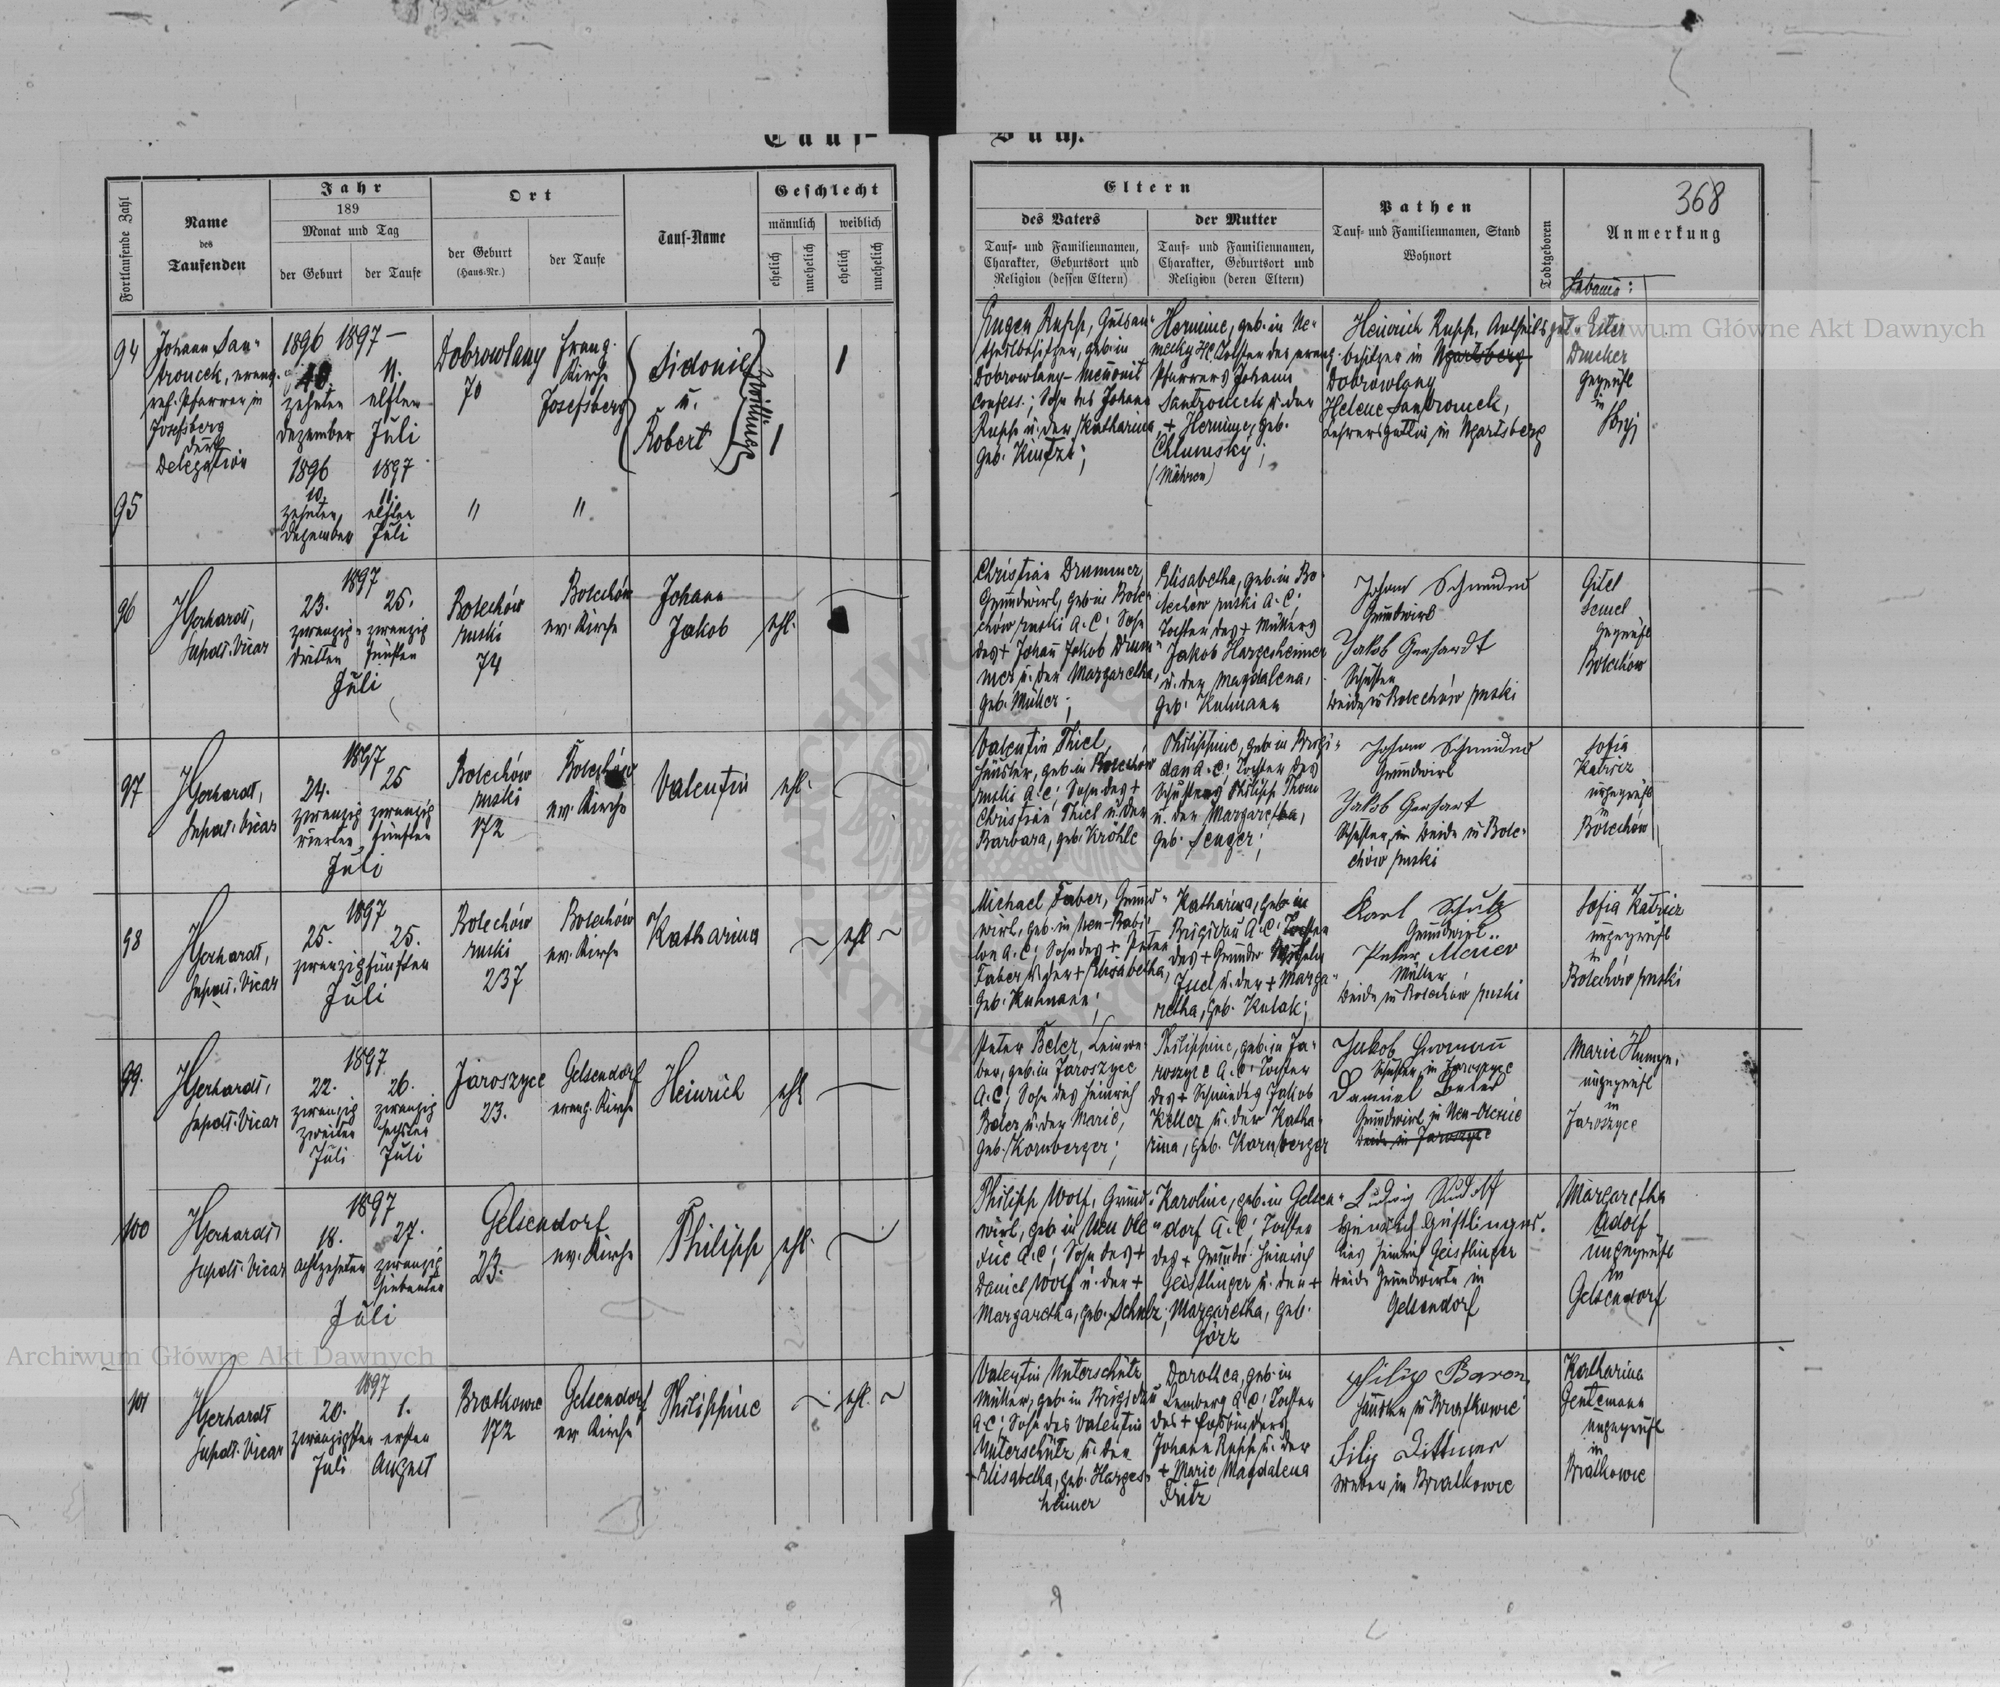 Tauf-Buch.
368
Fortlaufende Zahl
Name
des
Taufenden
Jahr
189
Monat und Tag
der Geburt
der Taufe
Ort
der Geburt
(Haus-Nr.)
der Taufe
Tauf-Name
Geschlecht
männlich
weiblich
ehelich
unehelich
ehelich
unehelich
Eltern
des Vaters
Tauf- und Familiennamen,
Charakter, Geburtsort und
Religion (dessen Eltern)
der Mutter
Tauf- und Familiennamen,
Charakter, Geburtsort und
Religion (deren Eltern)
Pathen
Tauf- und Familiennamen, Stand
Wohnort
Todtgeboren
Anmerkung
Hebamme:
94
Johann San-
trouček, evang.
ref. Pfarrer in
Josefsberg
durch
Delegation
1896
10.
zehnten
Dezember
1897
11.
elften
Juli
Dobrowlany
70
Evang.
Kirche
Josefsberg
Sidonie
u.
Robert
Zwillinge
1
1
Eugen Rupp, Gutsan-
theilbesitzer, geb. in
Dobrowlany - Menonit
Confess.; Sohn des Johann
Rupp u. der Katharina
geb. Kintzi;
Hermine, geb. in
Tochter des evang.
Pfarrers Johann
Santrouček u. der
+ Hermine, geb.
Chlumsky;
(Mähren)
Heinrich Rupp, Antheilsgut-
besitzer in Ugartsberg
Dobrowlany
Helene Santrouček,
Lehrersgattin in Ugartsberg
Ester
Drucker
geprüft
in
Stryj
95
1896
10.
zehnten
Dezember
1897
11.
elften
Juli
"
"
96
HGerhardt,
Supdt. Vicar
1897
23.
zwanzig-
dritten
25.
zwanzig
fünften
Juli
Bolechów
ruski
74
Bolechów
ev. Kirche
Johann
Jakob
ehl.
Christian Drummer,
Grundwirt, geb. in Bole-
chów ruski A.C.; Sohn
des + Johann Jakob Drum-
mer u. der Margaretha,
geb. Müller;
Elisabetha, geb. in Bo-
lechów ruski A.C.
Tochter des + Müllers
Jakob Hargesheimer
u. der Magdalena,
geb. Kulmann
Johann Schneider
Grundwirt
Jakob Gerhardt
Schuster
beide in Bolechów ruski
Gitel
Semel
geprüft
Bolechów
97
HGerhardt,
Supdt. Vicar
1897
24.
zwanzig
vierten
25
zwanzig
fünften
Juli
Bolechów
ruski
172
Bolechów
ev. Kirche
Valentin
ehl.
Valentin Thiel,
Häusler, geb. in Bolechów
ruski A.C.; Sohn des +
Christian Thiel u. der
Barbara, geb. Kröhle
Philippine, geb. in Brigi-
dau A.C.; Tochter des
Schusters Philipp Thom
u. der Margaretha,
geb. Senger;
Johann Schneider
Grundwirt
Jakob Gerhart
Schuster, beide in Bole-
chów ruski
Sofia
Katricz
ungeprüft
Bolechów
98
HGerhardt,
Supdt. Vicar
1897
25.
25.
zwanzigfünften
Juli
Bolechów
ruski
237
Bolechów
ev. Kirche
Katharina
ehl
Michael Faber, Grund-
wirt, geb. in Neu-Babi-
lon A.C.; Sohn des + Peter
Faber u. der + Elisabetha,
geb. Kulmann;
Katharina, geb. in
Brigidau A.C.; Tochter
des + Grundw. Wilhelm
Juel u. der + Marga-
retha, geb. Kulak;
Karl Schulz
Grundwirt
Peter Meier
Müller
beide in Bolechów ruski
Sofia Katricz
ungeprüft
in
Bolechów ruski
99.
HGerhardt,
Supdt. Vicar
1897
22.
zwanzig
zweiten
Juli
26.
zwanzig
sechsten
Juli
Jaroszyce
23.
Gelsendorf
evang. Kirche
Heinrich
ehl
Peter Beler, Leinwe-
ber, geb. in Jaroszyce
A.C.; Sohn des Heinrich
Beler u. der Marie,
geb. Kornberger;
Philippine, geb. in Ja-
roszyce A.C.; Tochter
des + Schmiedes Jakob
Keller u. der Katha-
rina, geb. Kornberger
Jakob
Schuster in Jaroszyce
Daniel Beler
Grundwirt in Neu-Olexnie
beide in Jaroszyce
Marie
ungeprüft
in
Jaroszyce
100
HGerhardt,
Supdt. Vicar
1897
18.
achtzehnten
27.
zwanzig
siebenten
Juli
Gelsendorf
23.
ev. Kirche
Philipp
ehl.
Philipp Wolf, Grund-
wirt, geb. in Neu Ole-
xnie A.C.; Sohn des +
Daniel Wolf u. der +
Margaretha, geb. Schulz;
Karoline, geb. in Gelsen-
dorf A.C.; Tochter
des + Grundw. Heinrich
Geistlinger u. der +
Margaretha, geb.
Görz
Ludwig Rudolf
Heinrich Geistlinger
Heinrich Geistlinger
beide Grundwirte in
Gelsendorf
Margaretha
Adolf
ungeprüft
in
Gelsendorf
101
HGerhardt
Supdt. Vicar
1897
20.
zwanzigsten
Juli
1.
ersten
August
Bratkowce
172
Gelsendorf
ev. Kirche
Philippine
ehl.
Valentin Unterschütz
Müller, geb. in Brigidau
A.C.; Sohn des Valentin
Unterschütz u. der
Elisabetha, geb. Harges-
heimer
Dorothea, geb. in
Lemberg A.C.; Tochter
des + Fassbinders
Johann Rupp u. der
+ Marie Magdalena
Fritz
Filip Baron
Häusler in Bratkowce
Filip Dittmer
Weber in Bratkowce
Katharina
Gentemann
ungeprüft
in
Bratkowce
Archiwum Główne Akt Dawnych
Archiwum Główne Akt Dawnych